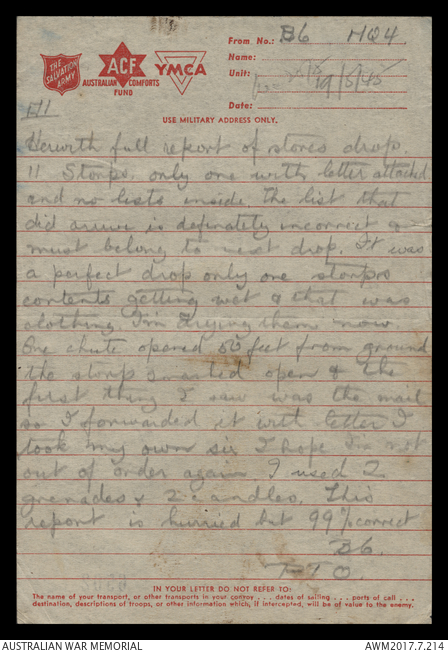 THE SALVATION ARMY
ACF
AUSTRALIAN COMFORTS FUND
YMCA
From No.: B6 HQ4
Name:
Unit: 19/5/45
Date:
USE MILITARY ADDRESS ONLY.
A1
Herwith full report of stores drop.
11 Storps. only one with letter attached
and no lists inside the list that
did arrive is definately incorrect &
must belong to next drop. It was
a perfect drop only one storps
contents getting wet & that was
clothing I'm drying them now
One chute opened 50 feet from ground
the storp smashed open & the
first thing I saw was the mail
so I forwarded it with letter I
took my own sir I hope I'm not
out of order again I used 2
grenades & 2 candles. This
report is hurried but 99% correct
B6.
PTO.
IN YOUR LETTER DO NOT REFER TO:
The name of your transport, or other transports in your convoy . . . dates of sailing . . . ports of call . . .
destination, descriptions of troops, or other information which, if intercepted, will be of value to the enemy.
AUSTRALIAN WAR MEMORIAL
AWM2017.7.214